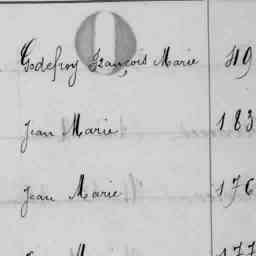 Godefroy François Marie 119
Jean Marie 183
Jean Marie 176
177